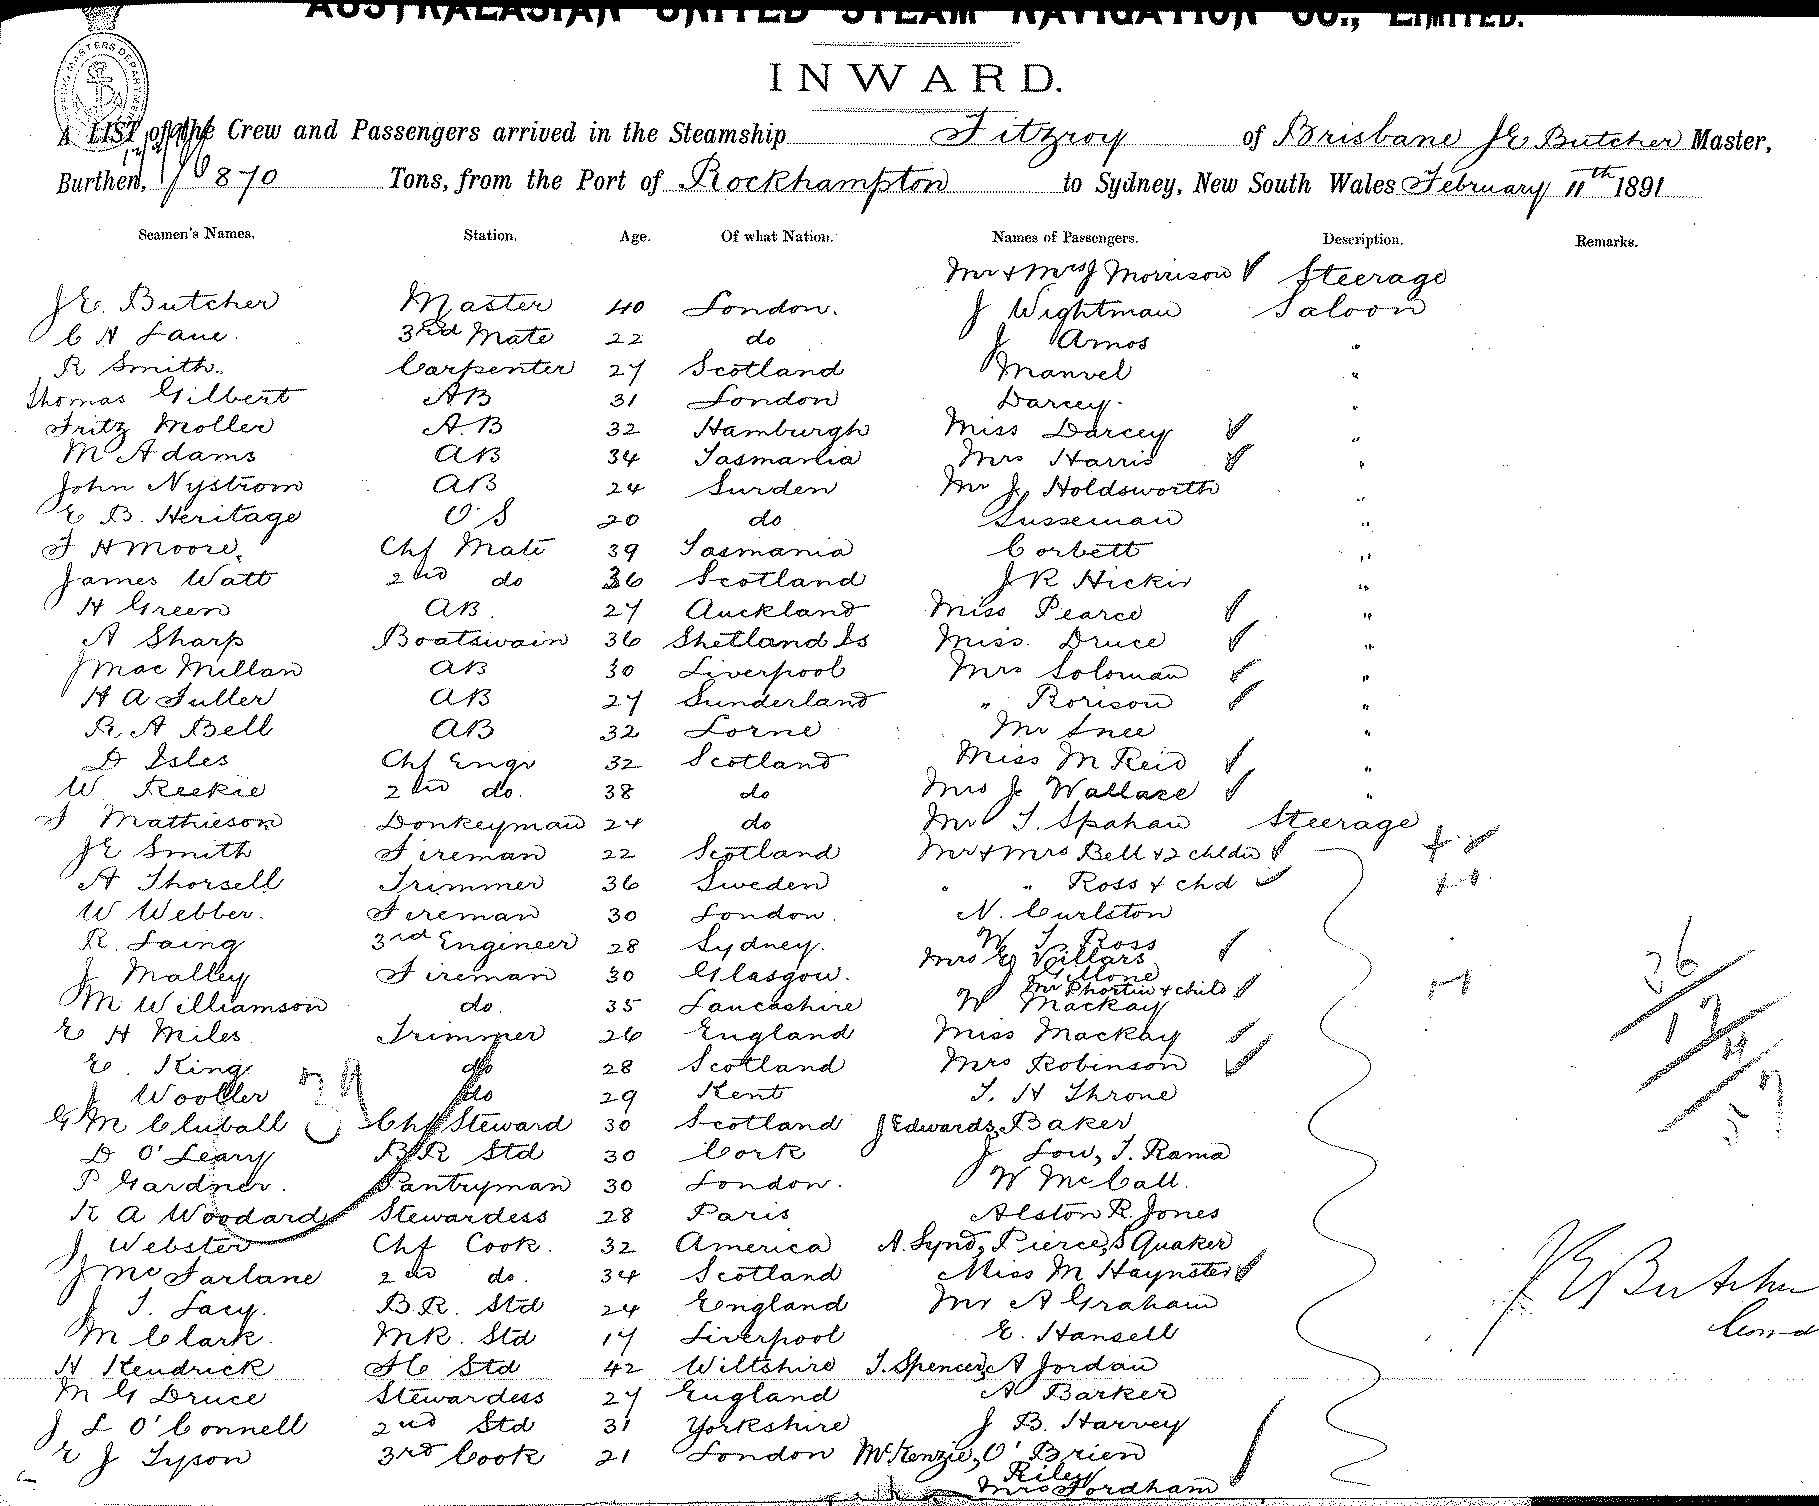 AUSTRALASIAN UNITED STEAM NAVIGATION CO., LIMITED.
INWARD.
A LIST of the Crew and Passengers arrived in the Steamship Fitzroy of Brisbane J E Butcher Master,
Burthen, 870 Tons, from the Port of Rockhampton to Sydney, New South Wales February 11th 1891
Seamen's Names. Station. Age. Of what Nation. Names of Passengers. Description. Remarks.
Mr + Mrs J Morrison Steerage
J E. Butcher Master 40 London. J Wightman Saloon
C A Lane. 3rd Mate 22 do J Amos "
R Smith. Carpenter 27 Scotland Manvel "
Thomas Gilbert AB 31 London Darcey. "
Fritz Moller A.B 32 Hamburgh Miss Darcey "
M Adams AB 34 Tasmania Mrs Harris "
John Nystrom AB 24 Surden Mr J. Holdsworth "
E B. Heritage O S 20 do Susseman "
F H Moore. Chf Mate 39 Tasmania Corbett "
James Watt 2nd do 36 Scotland J R Hickir "
H Green AB. 27 Auckland Miss Pearce "
A Sharp Boatswain 36 Shetland Is Miss. Druce "
J Mac Millan AB 30 Liverpool Mrs Soloman "
H A Fuller AB 27 Sunderland " Rorison "
R A Bell AB 32 Lorne Mr Snee "
D Isles Chf Engr 32 Scotland Miss M Reid "
W Reekie 2nd do. 38 do Mrs J Wallace "
J Mathieson Donkeyman 24 do Mr T. Spahan Steerage
J E Smith Fireman 22 Scotland Mr + Mrs Bell + 2 childn
A Thorsell Trimmer 36 Sweden " " Ross + chd
W Webber. Fireman 30 London. N. Curlston
R. Laing 3rd Engineer 28 Sydney. W T. Ross
Mrs E Villars
J Malley Fireman 30 Glasgow. G Mone
Mr Phortin + child
M Williamson do. 35 Lancashire W Mackay
E H Miles Trimmer 26 England Miss Mackay
E. King do 28 Scotland Mrs Robinson
J Wooller do 29 Kent T. H Throne
G M Cluball Chf Steward 30 Scotland J Edwards, Baker
D O'Leary B R Std 30 Cork J Low, T. Rama
P Gardner. Pantryman 30 London. W McCall.
K A Woodard Stewardess 28 Paris Alston R. Jones
J, Webster Chf Cook. 32 America A. Synd, Pierce, S Quaker
J McFarlane 2nd do. 34 Scotland Miss M Haynster
J T. Lacy. B.R. Std 24 England Mr A Graham
M Clark. M R. Std 17 Liverpool E. Hansell
H Kendrick F C Std 42 Wiltshire T. Spencer, A Jordan
M G Druce Stewardess 27 England A Barker
J L O'Connell 2nd Std 31 Yorkshire J B. Harvey
E J Tyson 3rd Cook 21 London McKenzie, O'Brien
Riley
Mrs Fordham
39
26
17
J E Butcher